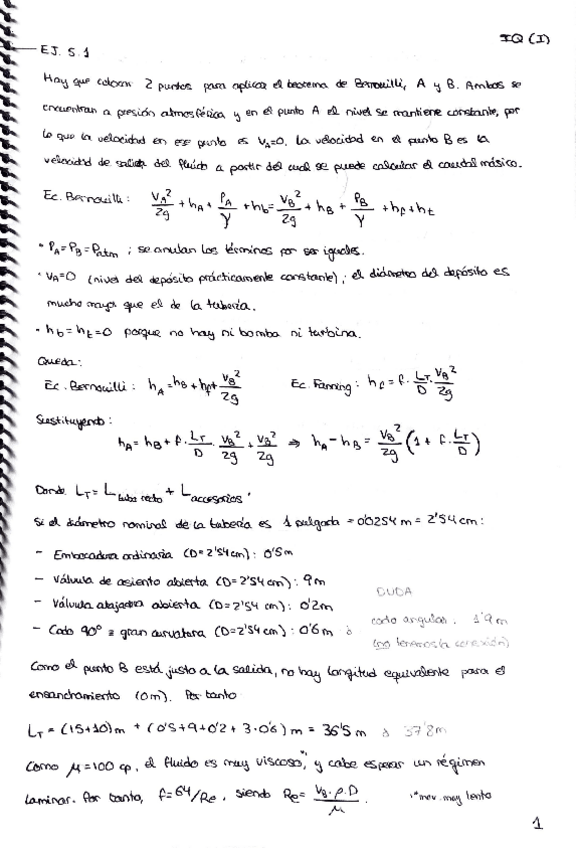 IQ (I)
EJ. 5.1
Hay que colocar 2 puntos para aplicar el teorema de Bernouilli, A y B. Ambos se
encuentran a presión atmosférica y en el punto A el nivel se mantiene constante, por
lo que la velocidad en ese punto es V_A=0. La velocidad en el punto B es la
velocidad de salida del fluido a partir del cual se puede calcular el caudal másico.
Ec. Bernouilli: V_A²/2g + h_A + P_A/γ + h_b = V_B²/2g + h_B + P_B/γ + h_f + h_t
· P_A = P_B = P_atm ; se anulan los términos por ser iguales.
· V_A=0 (nivel del depósito prácticamente constante); el diámetro del depósito es
mucho mayor que el de la tubería.
· h_b = h_t = 0 porque no hay ni bomba ni turbina.
Queda:
Ec. Bernouilli: h_A = h_B + h_f + V_B²/2g Ec. Fanning: h_f = f · L_T/D · V_B²/2g
Sustituyendo:
h_A = h_B + f · L_T/D · V_B²/2g + V_B²/2g ⇒ h_A - h_B = V_B²/2g (1 + f · L_T/D)
Donde L_T = L_tubo recto + L_accesorios.
Si el diámetro nominal de la tubería es 1 pulgada = 0'0254 m = 2'54 cm:
- Embocadura ordinaria (D=2'54 cm): 0'5 m
- Válvula de asiento abierta (D=2'54 cm): 9 m
- Válvula abierta (D=2'54 cm): 0'2 m
- Codo 90° gran curvatura (D=2'54 cm): 0'6 m ó
DUDA
codo angular. 1'9 m
(no tenemos la conexión)
Como el punto B está justo a la salida, no hay longitud equivalente para el
ensanchamiento (0 m). Por tanto
L_T = (15+10) m + (0'5+9+0'2+3·0'6) m = 36'5 m ó 37'8 m
Como μ=100 cp, el fluido es muy viscoso*, y cabe esperar un régimen
laminar. Por tanto, f=64/Re, siendo Re = V_B · ρ · D / μ. *mov. muy lento
1